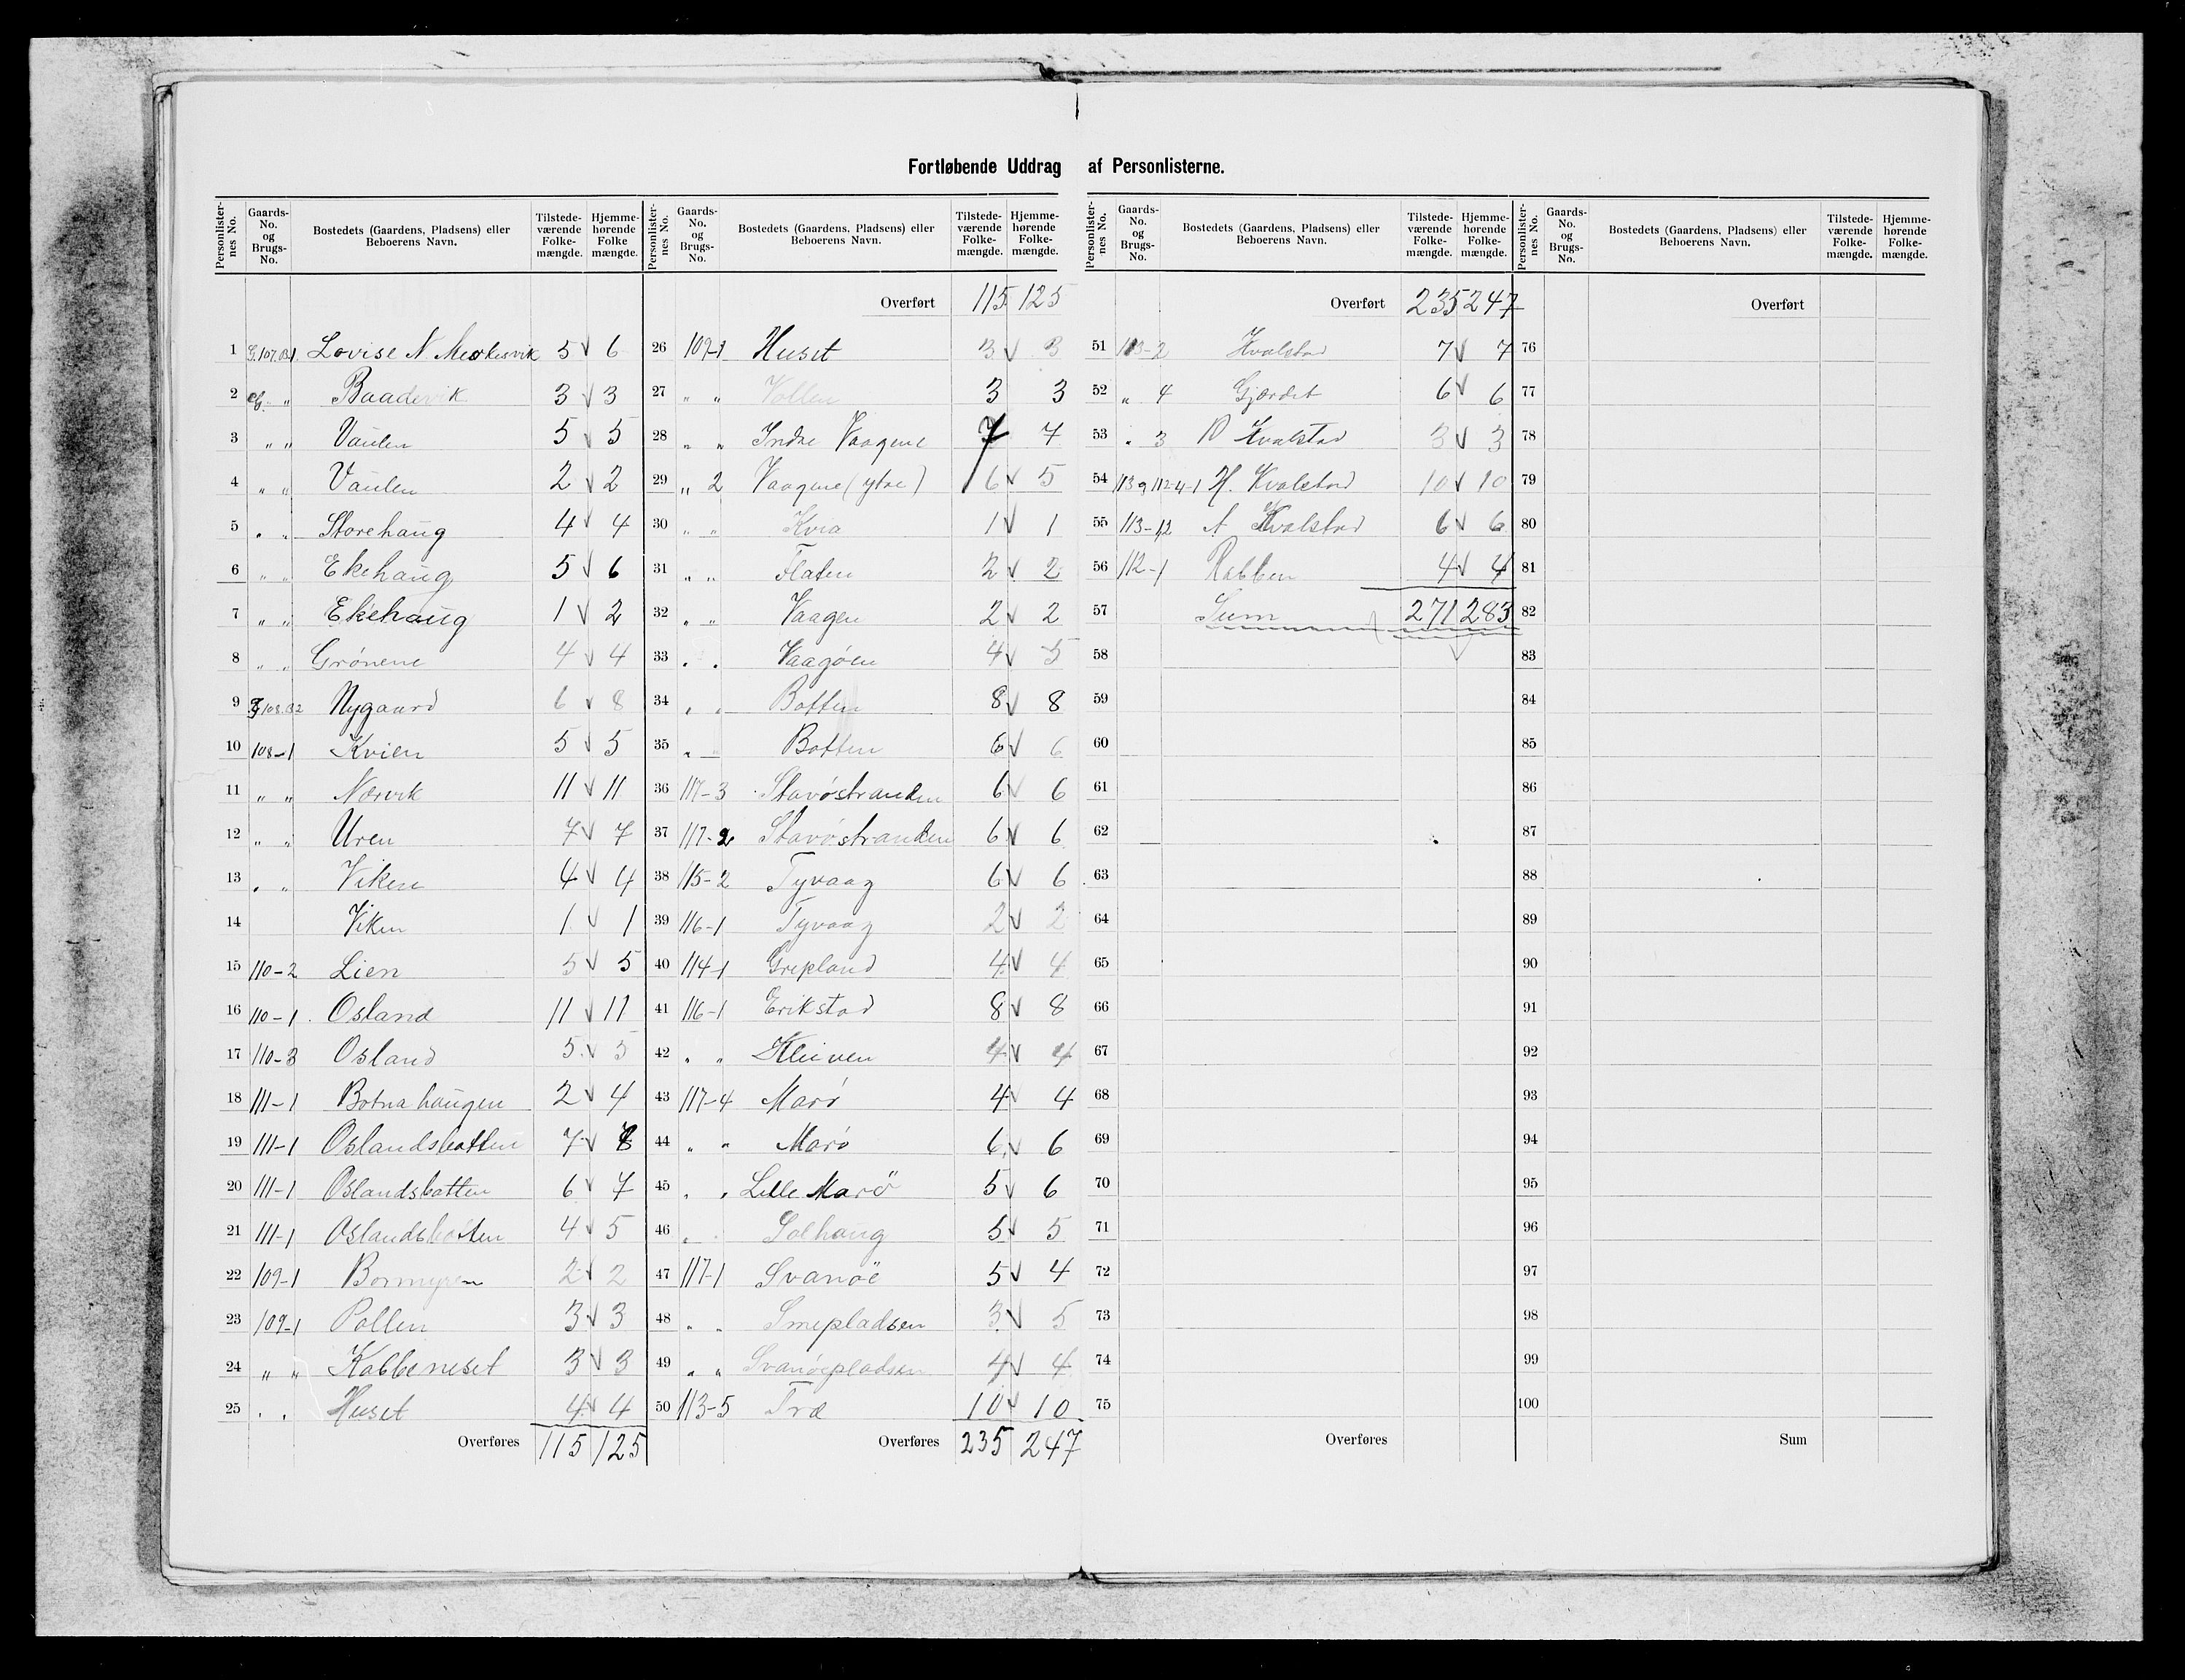 Fortløbende Uddrag af Personlisterne.
Personlister-nes No. Gaards-No. og Brugs-No. Bostedets (Gaardens, Pladsens) eller Beboerens Navn. Tilstede-værende Folke-mængde. Hjemme-hørende Folke mængde.
1 G.107.B1. Lovise N. 5 6
2 G. „ Baadevik 3 3
3 „ „ Vaulen 5 5
4 „ „ Vaulen 2 2
5 „ „ Storehaug 4 4
6 „ „ Ekehaug 5 6
7 „ „ Ekehaug 1 2
8 „ „ Grónene 4 4
9 G.108.B2 Nygaard 6 8
10 108-1 Kvien 5 5
11 „ „ Nærvik 11 11
12 „ „ Uren 7 7
13 „ „ Viken 4 4
14 Viken 1 1
15 110-2 Lien 5 5
16 110-1 Osland 11 11
17 110-3 Osland 5 5
18 111-1 Botnahaugen 2 4
19 111-1 Oslandsbotten 7 8
20 111-1 Oslandsbotten 6 7
21 111-1 Oslandsbotten 4 5
22 109-1 Bormyren 2 2
23 109-1 Pollen 3 3
24 „ „ Kobbeneset 3 3
25 „ „ Huset 4 4
Overføres 115 125
Personlister-nes No. Gaards-No. og Brugs-No. Bostedets (Gaardens, Pladsens) eller Beboerens Navn. Tilstede-værende Folke-mængde. Hjemme-hørende Folke-mængde.
Overført 115 125
26 109-1 Huset 3 3
27 „ „ Vollen 3 3
28 „ „ Indre Vaagene 7 7
29 „ 2 Vaagene (ytre) 6 5
30 „ „ Kvia 1 1
31 „ „ Flaten 2 2
32 „ „ Vaagen 2 2
33 „ „ Vaagøen 4 5
34 „ „ Botten 8 8
35 „ „ Botten 6 6
36 117-3 Stavøstranden 6 6
37 117-2 Stavøstranden 6 6
38 115-2 Tyvaag 6 6
39 116-1 Tyvaag 2 2
40 114-1 Grepland 4 4
41 116-1 Erikstad 8 8
42 „ „ Kleiven 4 4
43 117-4 Marø 4 4
44 „ „ Marø 6 6
45 „ „ Lille Marö 5 6
46 „ Solhaug 5 5
47 117-1 Svanöe 5 4
48 „ „ Smepladsen 3 5
49 „ „ Svanøepladsen 4 4
50 113-5 Træ 10 10
Overføres 235 247
Personlister-nes No. Gaards-No. og Brugs-No. Bostedets (Gaardens, Pladsens) eller Beboerens Navn. Tilstede-værende Folke-mængde. Hjemme-hørende Folke-mængde.
Overført 235 247
51 113-2 Kvalstad 7 7
52 „ 4 Gjærdet 6 6
53 „ 3 Kvalstad 3 3
54 H. Kvalstad 10 10
55 113-12 A Kvalstad 6 6
56 112-1 Rabben 4 4
57 Sum 271 283
58
59
60
61
62
63
64
65
66
67
68
69
70
71
72
73
74
75
Overføres
Personlister-nes No. Gaards-No. og Brugs-No. Bostedets (Gaardens, Pladsens) eller Beboerens Navn. Tilstede-værende Folke-mængde. Hjemme-hørende Folke-mængde.
Overført
76
77
78
79
80
81
82
83
84
85
86
87
88
89
90
91
92
93
94
95
96
97
98
99
100
Sum